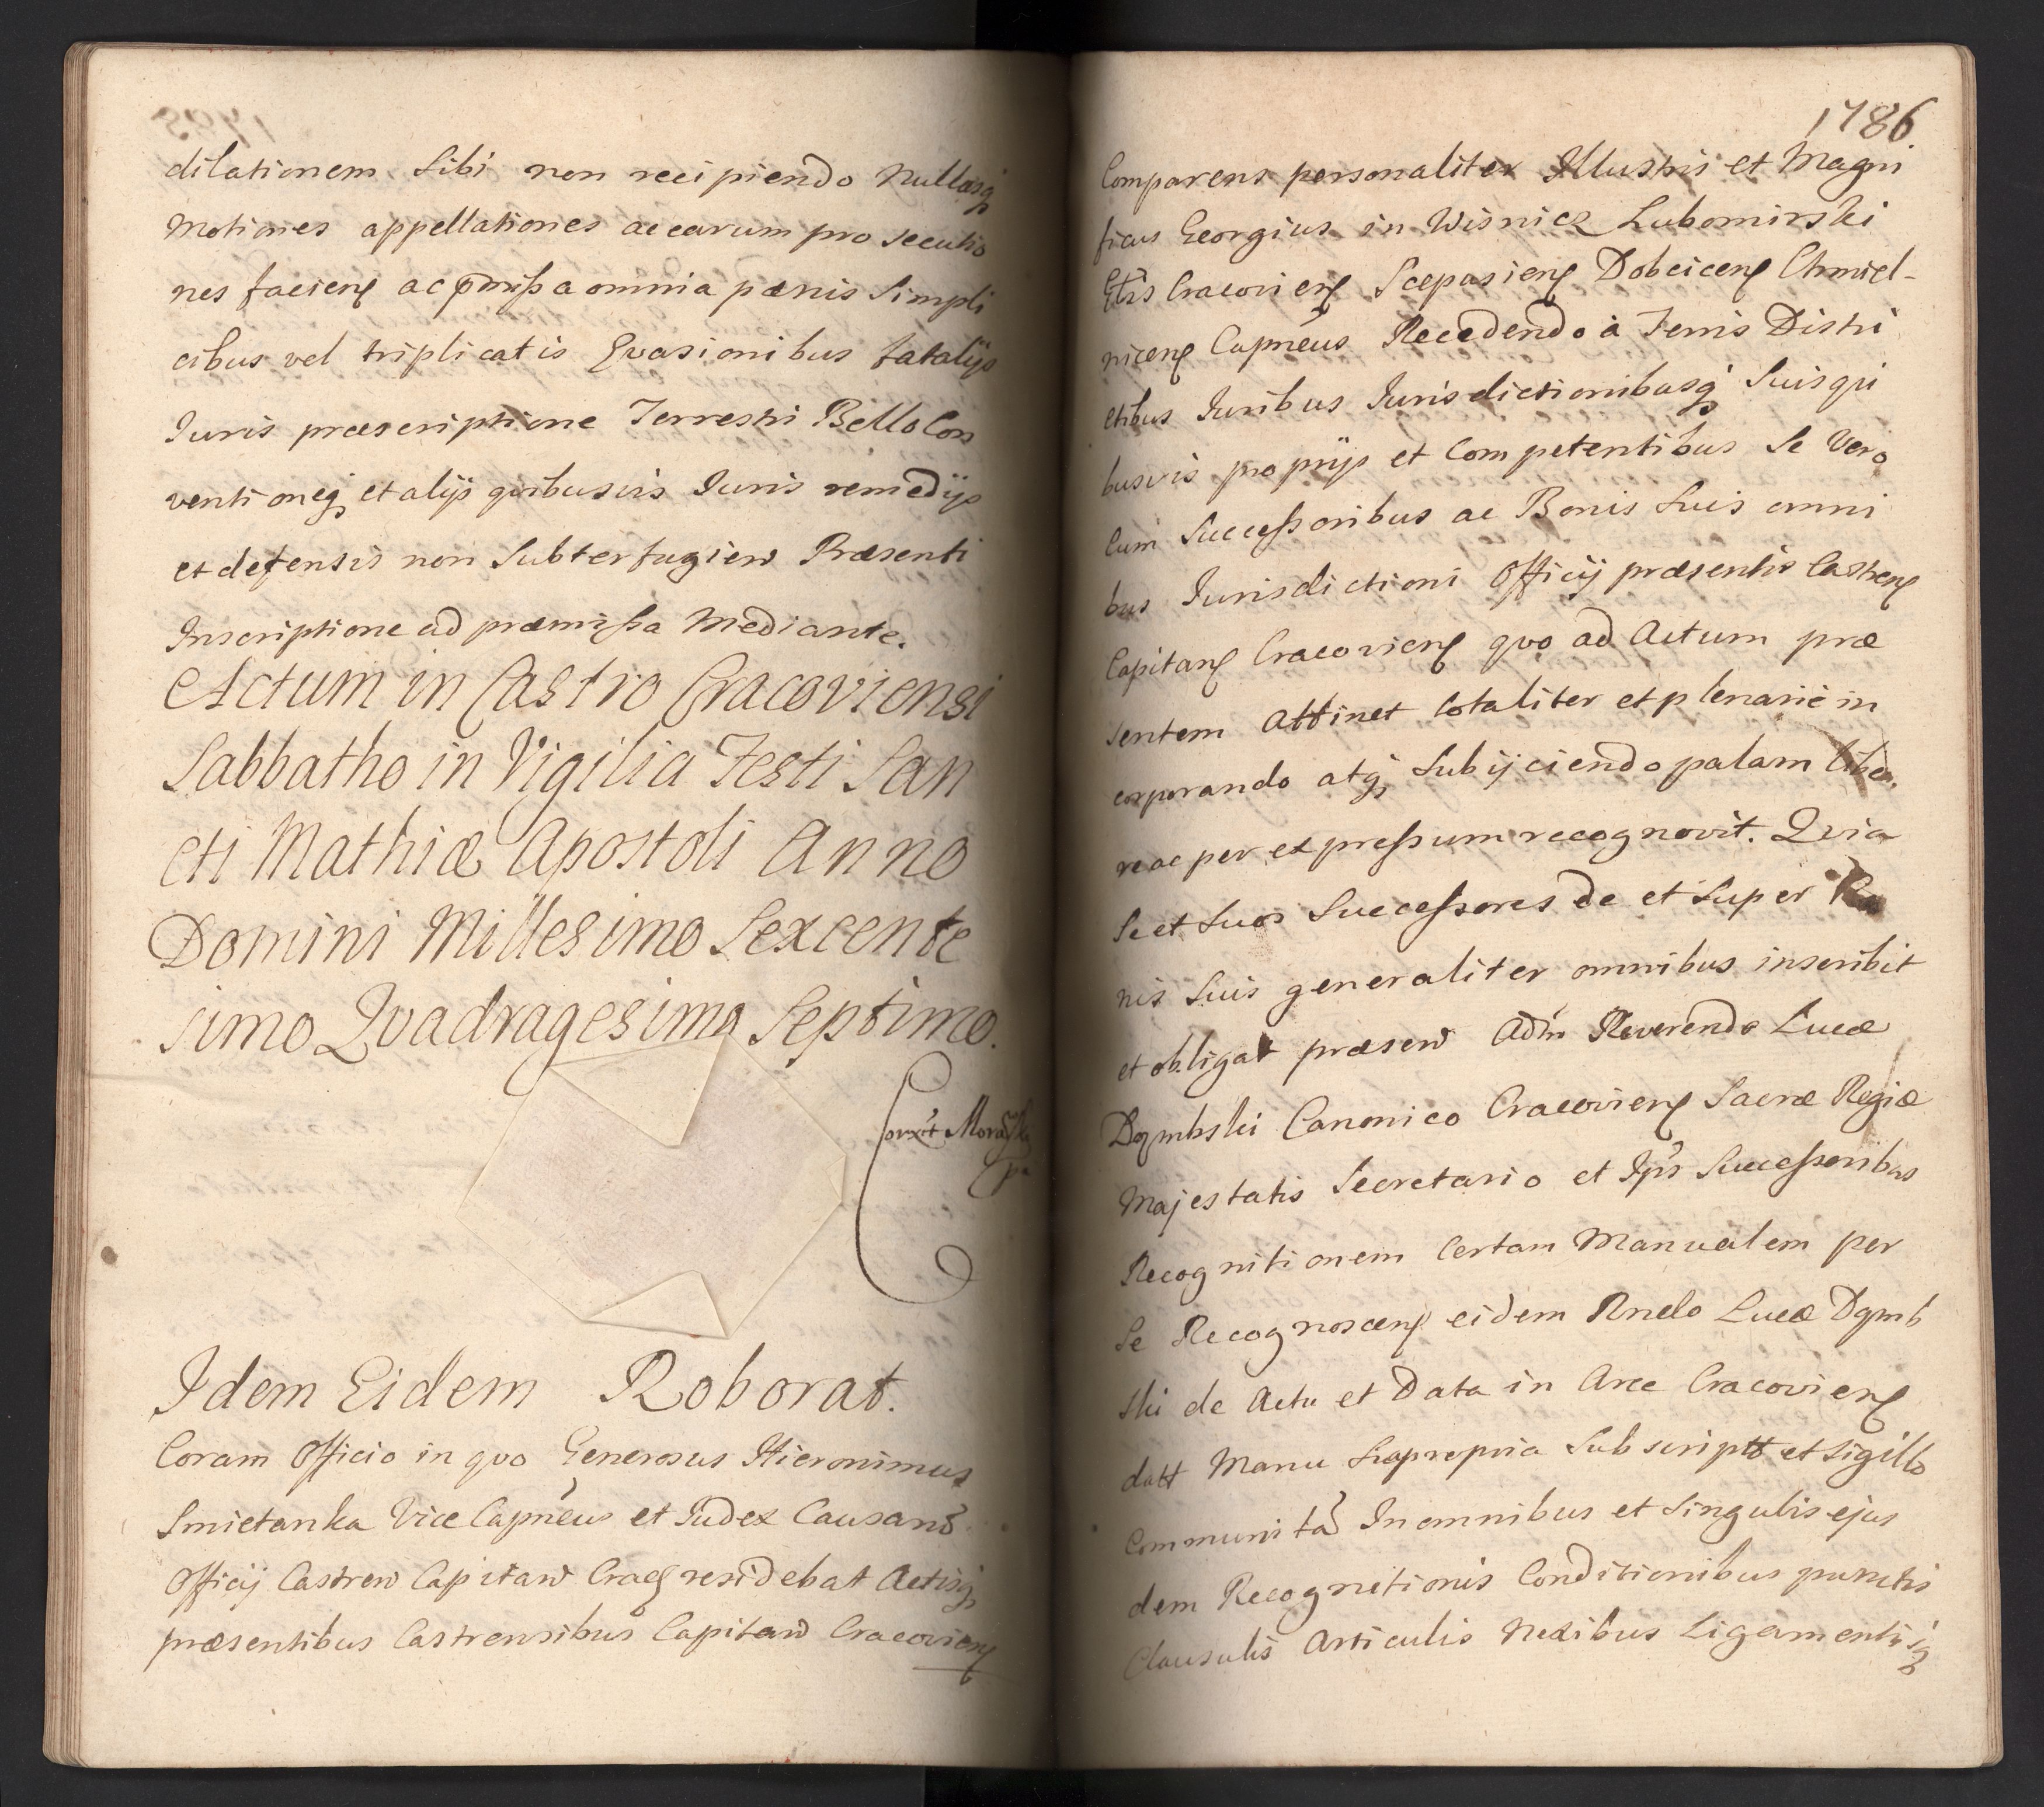 dilationem Sibi non recipiendo Nullasq
Motiones appellationes ac earum prosecutio
nes facien ac pmissa omnia pænis Simpli
cibus vel triplicatis Evasionibus fatalijs
Iuris præscriptione Terrestri Bello Con
ventioneq et alijs quibusvis Iuris remedijs
et defensis non Subterfugien Præsenti
Inscriptione ad præmissa Mediante.
Actum in Castro Cracoviensi
Sabbatho in Vigilia Festi San
cti Mathiæ Apostoli Anno
Domini Millesimo Sexcente
simo Quadragesimo Septimo.
Idem Eidem Roborat.
Coram Officio in quo Generosus Hieronimus
Smietanka Vice Capneus et Iudex Causaru
Officij Castren Capitan Crac residebat Actisq
præsentibus Castrensibus Capitan Cracovien
1786
Comparens personaliter Illustris et Magni
ficus Georgius in Wisnicz Lubomirski
Gtis Cracovien Scepusien Dobcicen Chmiel-
nicen Capneus Recedendo à Terris Distri
ctibus Iuribus Iurisdictionibusq Suis qui
busvis proprijs et Competentibus Se Vero
Cum Successoribus ac Bonis Suis omni
bus Iurisdictioni Officij præsentis Castren
Capitan Cracovien quo ad Actum præ
sentem Attinet totaliter et plenarie in
corporando atq Subijciendo palam libe
re ac per expressum recognovit. Quia
Se et Suos Successores de et Super Bo
nis Suis generaliter omnibus inscribit
et obligat præsen Adm Reverendo Lucæ
Dqmbski Canonico Cracovien Sacræ Regiæ
Majestatis Secretario et Ipis Successoribus
Recognitionem Certam Manualem per
Se Recognoscen eidem Rndo Lucæ Dqmb
ski de Actu et Data in Arce Cracovien
datt Manu Sua propria Subscript et Sigillo
Communita In omnibus et Singulis ejus
dem Recognitionis Conditionibus punctis
Clausulis Articulis Nexibus Ligamentisq